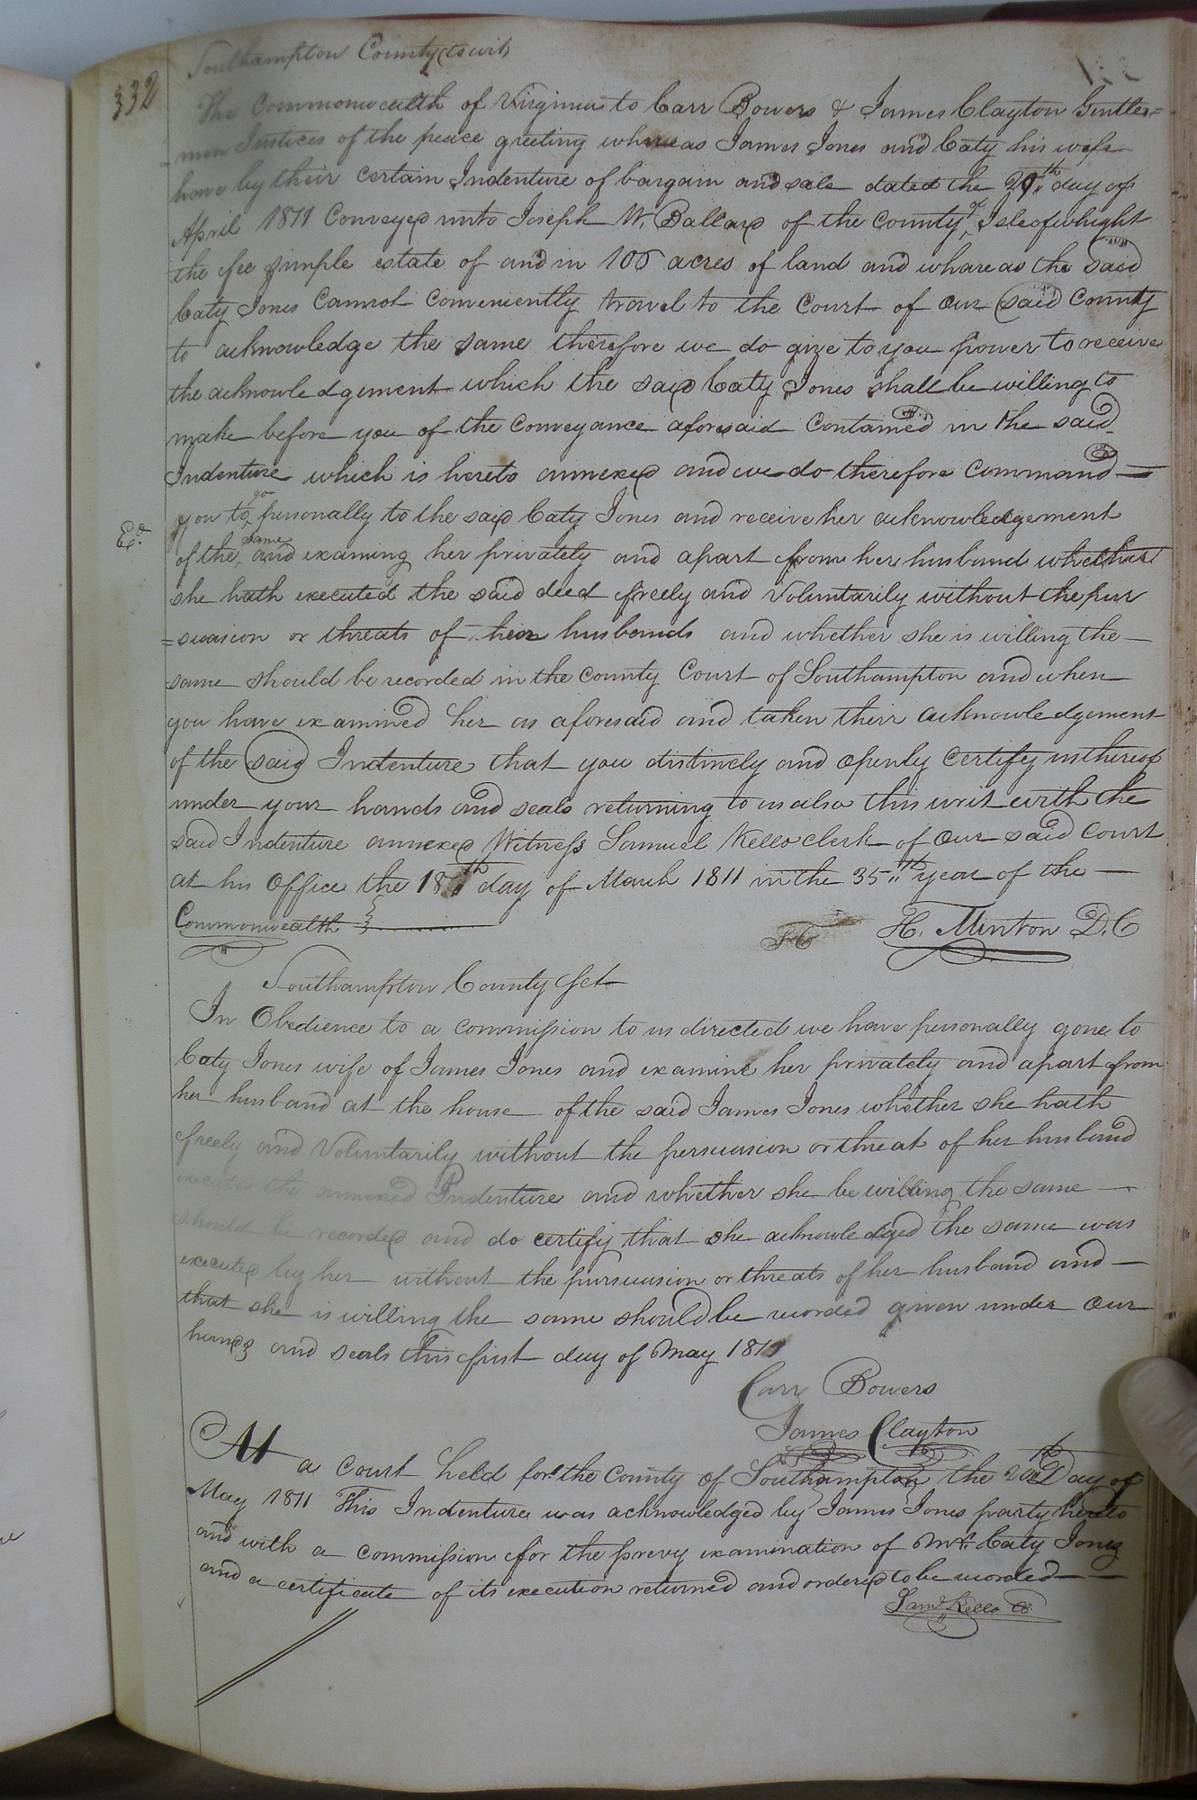 332
Southampton County (to wit)
The Commonwealth of Virginia to Carr Bowers & James Clayton Gentle=
men Justices of the peace greeting whereas James Jones and Caty his wife
have by their certain Indenture of bargain and sale dated the 29th day of
April 1811 Conveyed unto Joseph W. Ballard of the County of Isle of whight
the fee simple estate of and in 106 acres of land and whareas the said
Caty Jones Cannot Conveniently travel to the Court of our said County
to acknowledge the same therefore we do give to you power to receive
the acknowledgement which the said Caty Jones shall be willing to
make before you of the Conveyance aforesaid Contained in the said
Indenture which is hereto annexed and we do therefore Command
you to go personally to the said Caty Jones and receive her acknowledgement
Ed.
of the same and examing her privately and apart from her husband whether
she hath executed the said deed freely and Voluntarily without the pur
=suasion or threats of her husbands and whether she is willing the
same should be recorded in the County Court of Southampton and when
you have examined her as aforesaid and taken their acknowledgement
of the said Indenture that you distinctly and openly Certify us thereof
under your hands and seals returning to us also this writ with the
said Indenture annexed Witness Samuel Kello Clerk of our said Court
at his Office the 18th day of March 1811 in the 35th year of the
Commonwealth
H. Minton D.C
Southampton County Sct
In Obedience to a commission to us directed we have personally gone to
Caty Jones wife of James Jones and examine her privately and apart from
her husband at the house of the said James Jones whether she hath
freely and Voluntarily without the persuasion or threat of her husband
executed the annexed Indenture and whether she be willing the same
should be recorded and do certify that she acknowledged the same was
executed by her without the pursuasion or threats of her husband and
that she is willing the same should be recorded given under our
hands and seals this first day of May 1811
Carr Bowers
James Clayton
At a Court held for the County of Southampton the 20th Day of
May 1811 This Indenture was acknowledged by James Jones party hereto
and with a commission for the prevy examination of Mrs. Caty Jones
and a certificate of its execution returned and ordered to be recorded
Saml. Kello CC